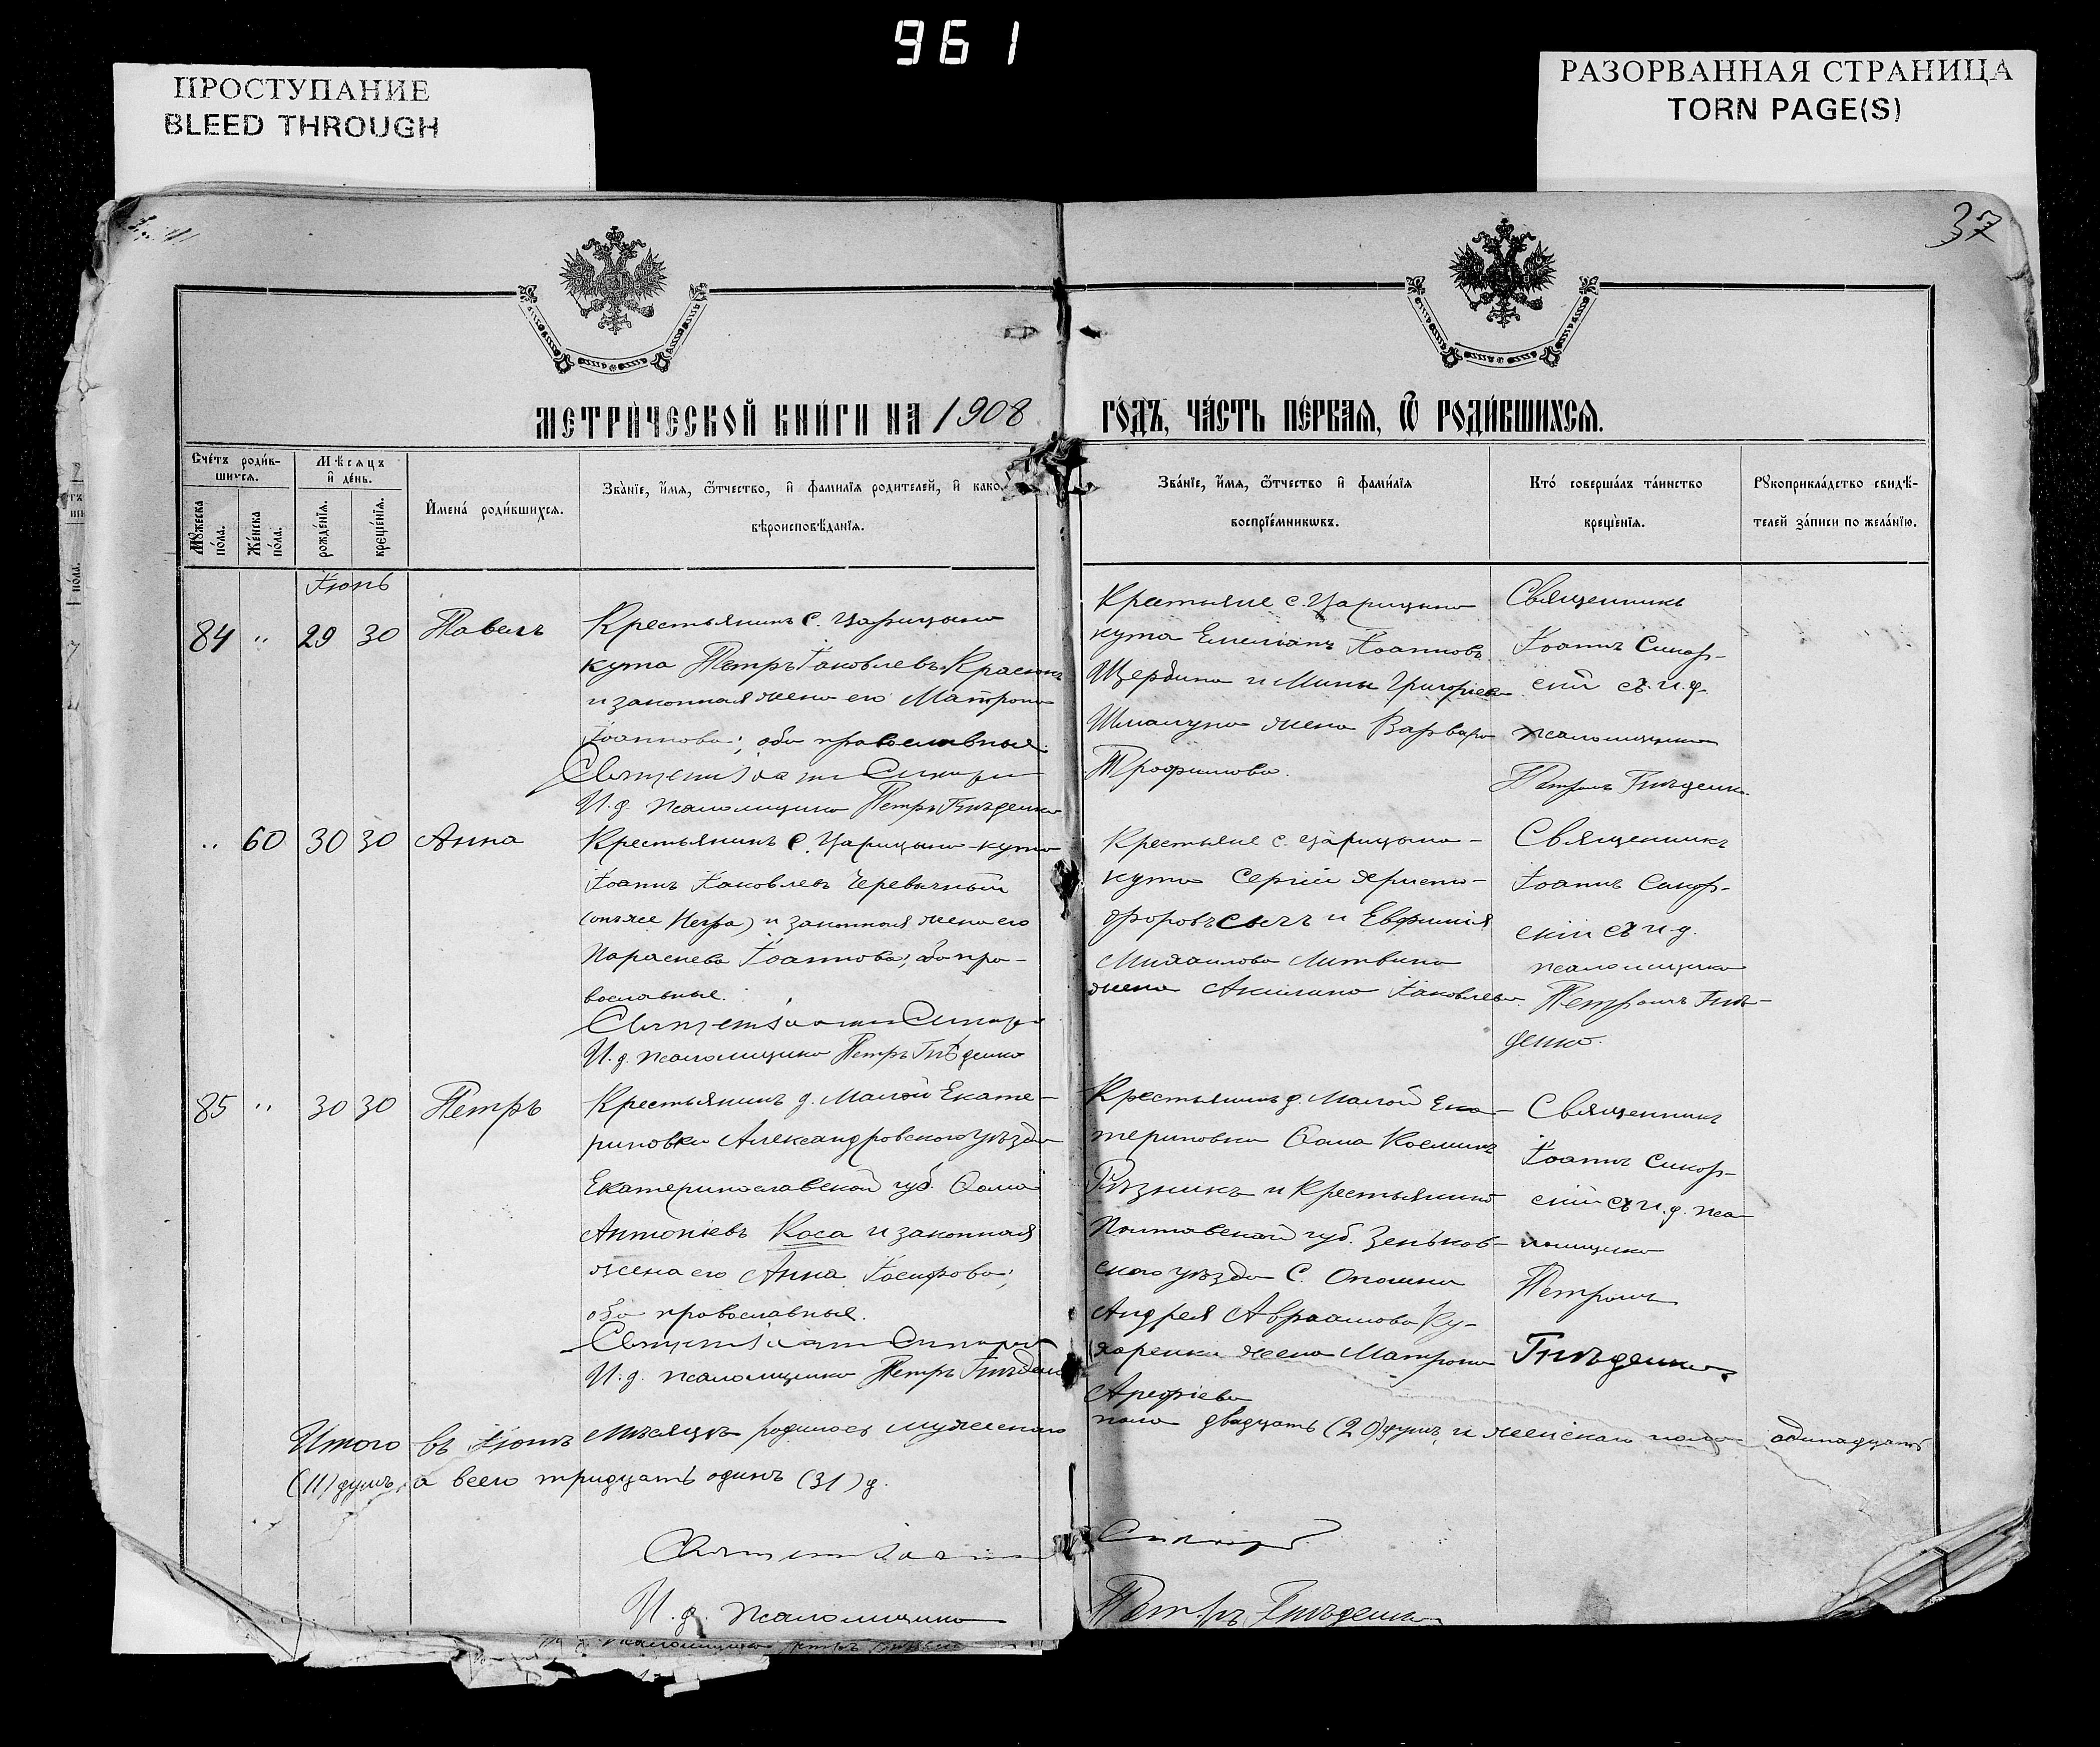 961
ПРОСТУПАНИЕ
BLEED THROUGH
РАЗОРВАННАЯ СТРАНИЦА
TORN PAGE(S)
37
МЕТРИ́ЧЕСКОЙ КНИ́ГИ НА 1908
ГО́ДЪ, ЧА́СТЬ ПЕ́РВАЯ, Ѡ РОДИ́ВШИХСЯ.
Сче́тъ роди́в-
шихся.
Мѣсяцъ
и де́нь.
Мужеска по́ла.
Же́нска по́ла.
рожде́нїя.
креще́нїя.
Имена́ роди́вшихся.
Зва́нїе, и́мя, ѻ́тчество, и фами́лїя родителей, и како
вѣроисповѣданїя.
Зва́нїе, и́мя, ѻ́тчество и фами́лїя
воспрїе́мниковъ.
Кто́ совершалъ та́инство
креще́нїя.
Рукоприкла́дство свидѣ-
телей за́писи по жела́нїю.
Іюнь
84 " 29 30 Павелъ
Крестьянинъ с. Царицына
кута Петръ Іаковлевъ
и законная жена его Матрона
Іоаннова; оба православные.
И. д. псаломщика Петръ Гнѣденко
Крестьяне с. Царицына
кута Емеліанъ Іоанновъ
Щербина и Мины Григоріева
жена Варвара
Трофимова.
Священникъ
Іоаннъ Сикор-
скій съ и. д.
псаломщика
Петромъ Гнѣденко.
" 60 30 30 Анна
Крестьянинъ с. Царицына-кута
Іоаннъ Іаковлевъ Черевычный
(онъ же Негра) и законная жена его
Параскева Іоаннова; оба пра-
вославные.
И. д. псаломщика Петръ Гнѣденко
Крестьяне с. Царицына-
кута Сергій Христо-
форовъ Сычъ и Евфимія
Михаилова Литвина
жена Акилина Іаковлева.
Священникъ
Іоаннъ Сикор-
скій съ и. д.
псаломщика
Петромъ Гнѣ-
денко.
85 " 30 30 Петръ
Крестьянинъ д. Малой Екате-
риновки Александровскаго уѣзда
Екатеринославской губ. Ѳома
Антоніевъ Коса и законная
жена его Анна Іосифова;
оба православные.
И. д. псаломщика Петръ Гнѣденко
Крестьянинъ д. Малой Ека-
териновки Ѳома Косминъ
Рѣзникъ и крестьянина
Полтавской губ. Зеньков-
скаго уѣзда с. Опошни
Андрея Авраамова Ку-
харенки жена Матрона
Арефіева
Священникъ
Іоаннъ Сикор-
скій съ и. д. пса
ломщика
Петромъ
Гнѣденко.
Итого въ Іюнѣ мѣсяцѣ родилось мужескаго пола двадцать (20) душъ и женскаго пола одинадцать
(11) душъ, а всего тридцать одинъ (31) д.
И. д. псаломщика Петръ Гнѣденко